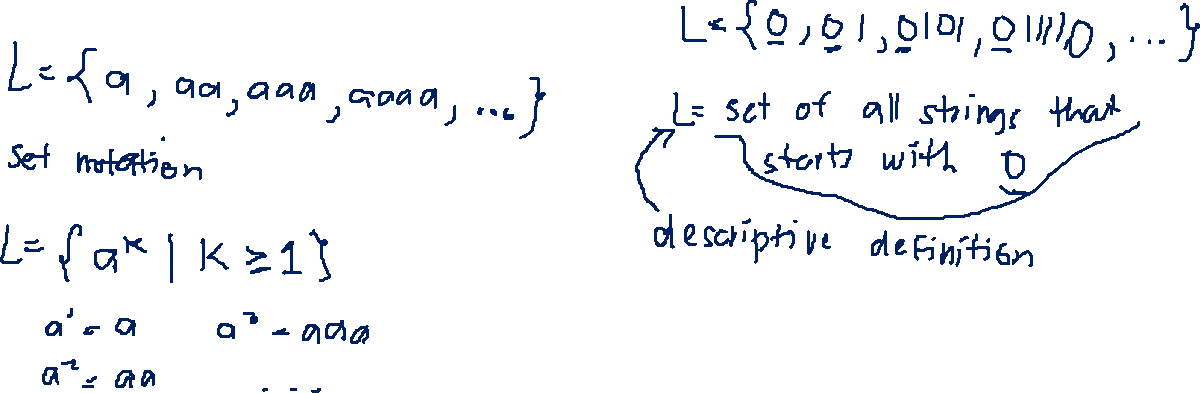 L = { a , aa , aaa , aaaa , ... }
set notation
L = { a^k | k ≥ 1 }
a¹ = a    a³ = aaa
a² = aa    ...
L = { 0 , 01 , 0101 , 011110 , ... }
L = set of all strings that
starts with 0
descriptive definition